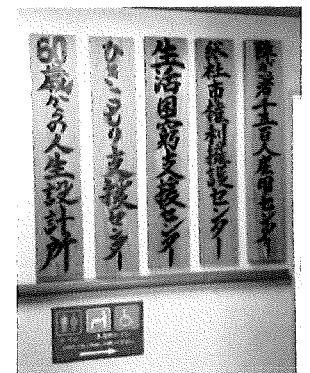 障がい者千五百人雇用センター
総社市権利擁護センター
生活困窮支援センター
ひきこもり支援センター
60歳からの人生設計所